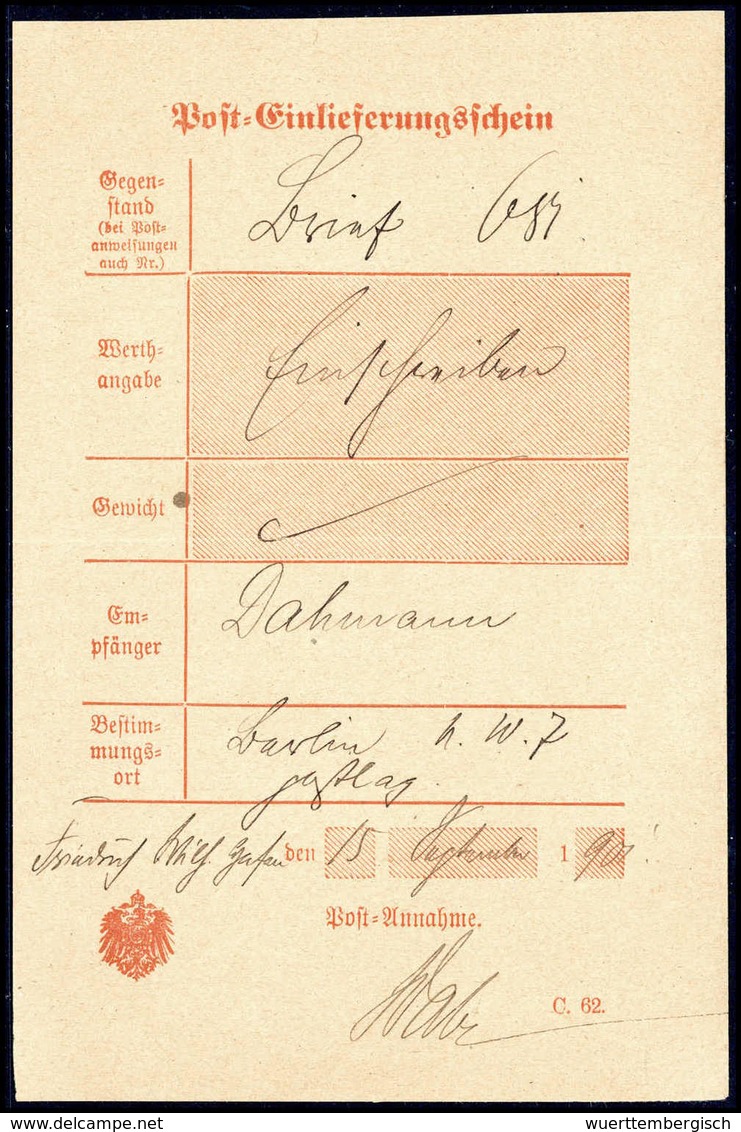 Post-Einlieferungsschein
Gegen-
stand
(bei Post-
anweisungen
auch Nr.)
Brief
Werth-
angabe
Einschreiben
Gewicht
Em-
pfänger
Dahmann
Bestim-
mungs-
ort
Berlin N. W. 7
postlag
Friedrich Wilh. Hafen den 15 September 1 900
Post-Annahme.
C. 62.
© www.delcampe.net
wuerttembergisch